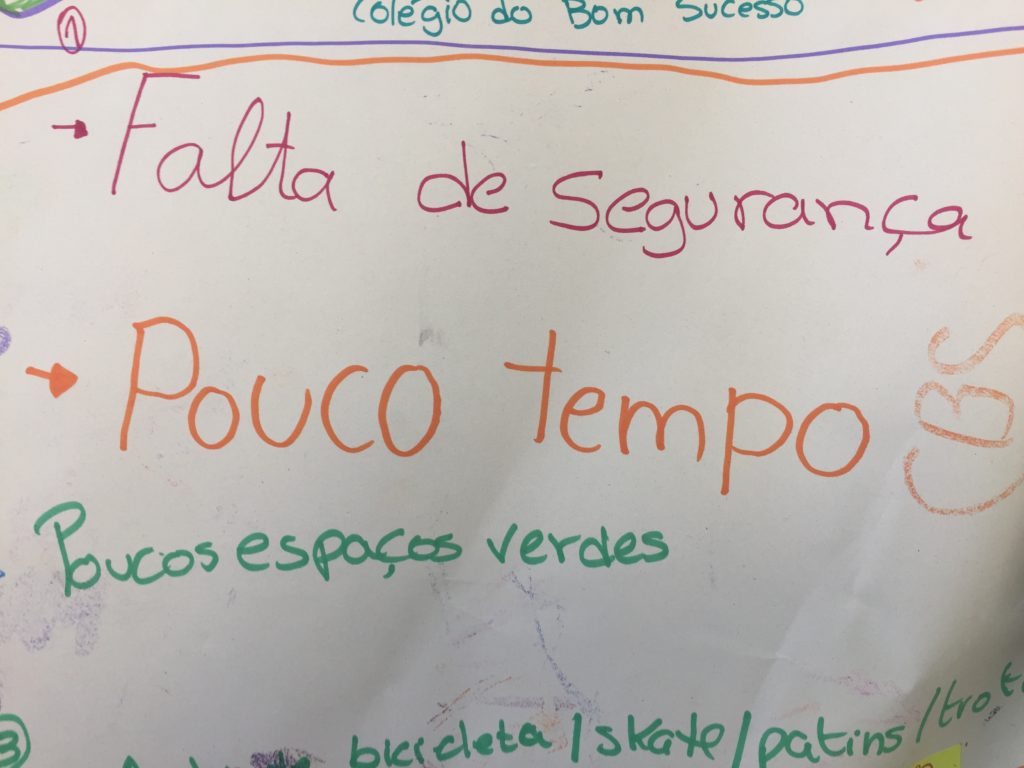 Colégio do Bom Sucesso
1
→ Falta de segurança
→ Pouco tempo
CBS
Poucos espaços verdes
3
bicicleta / skate / patins /